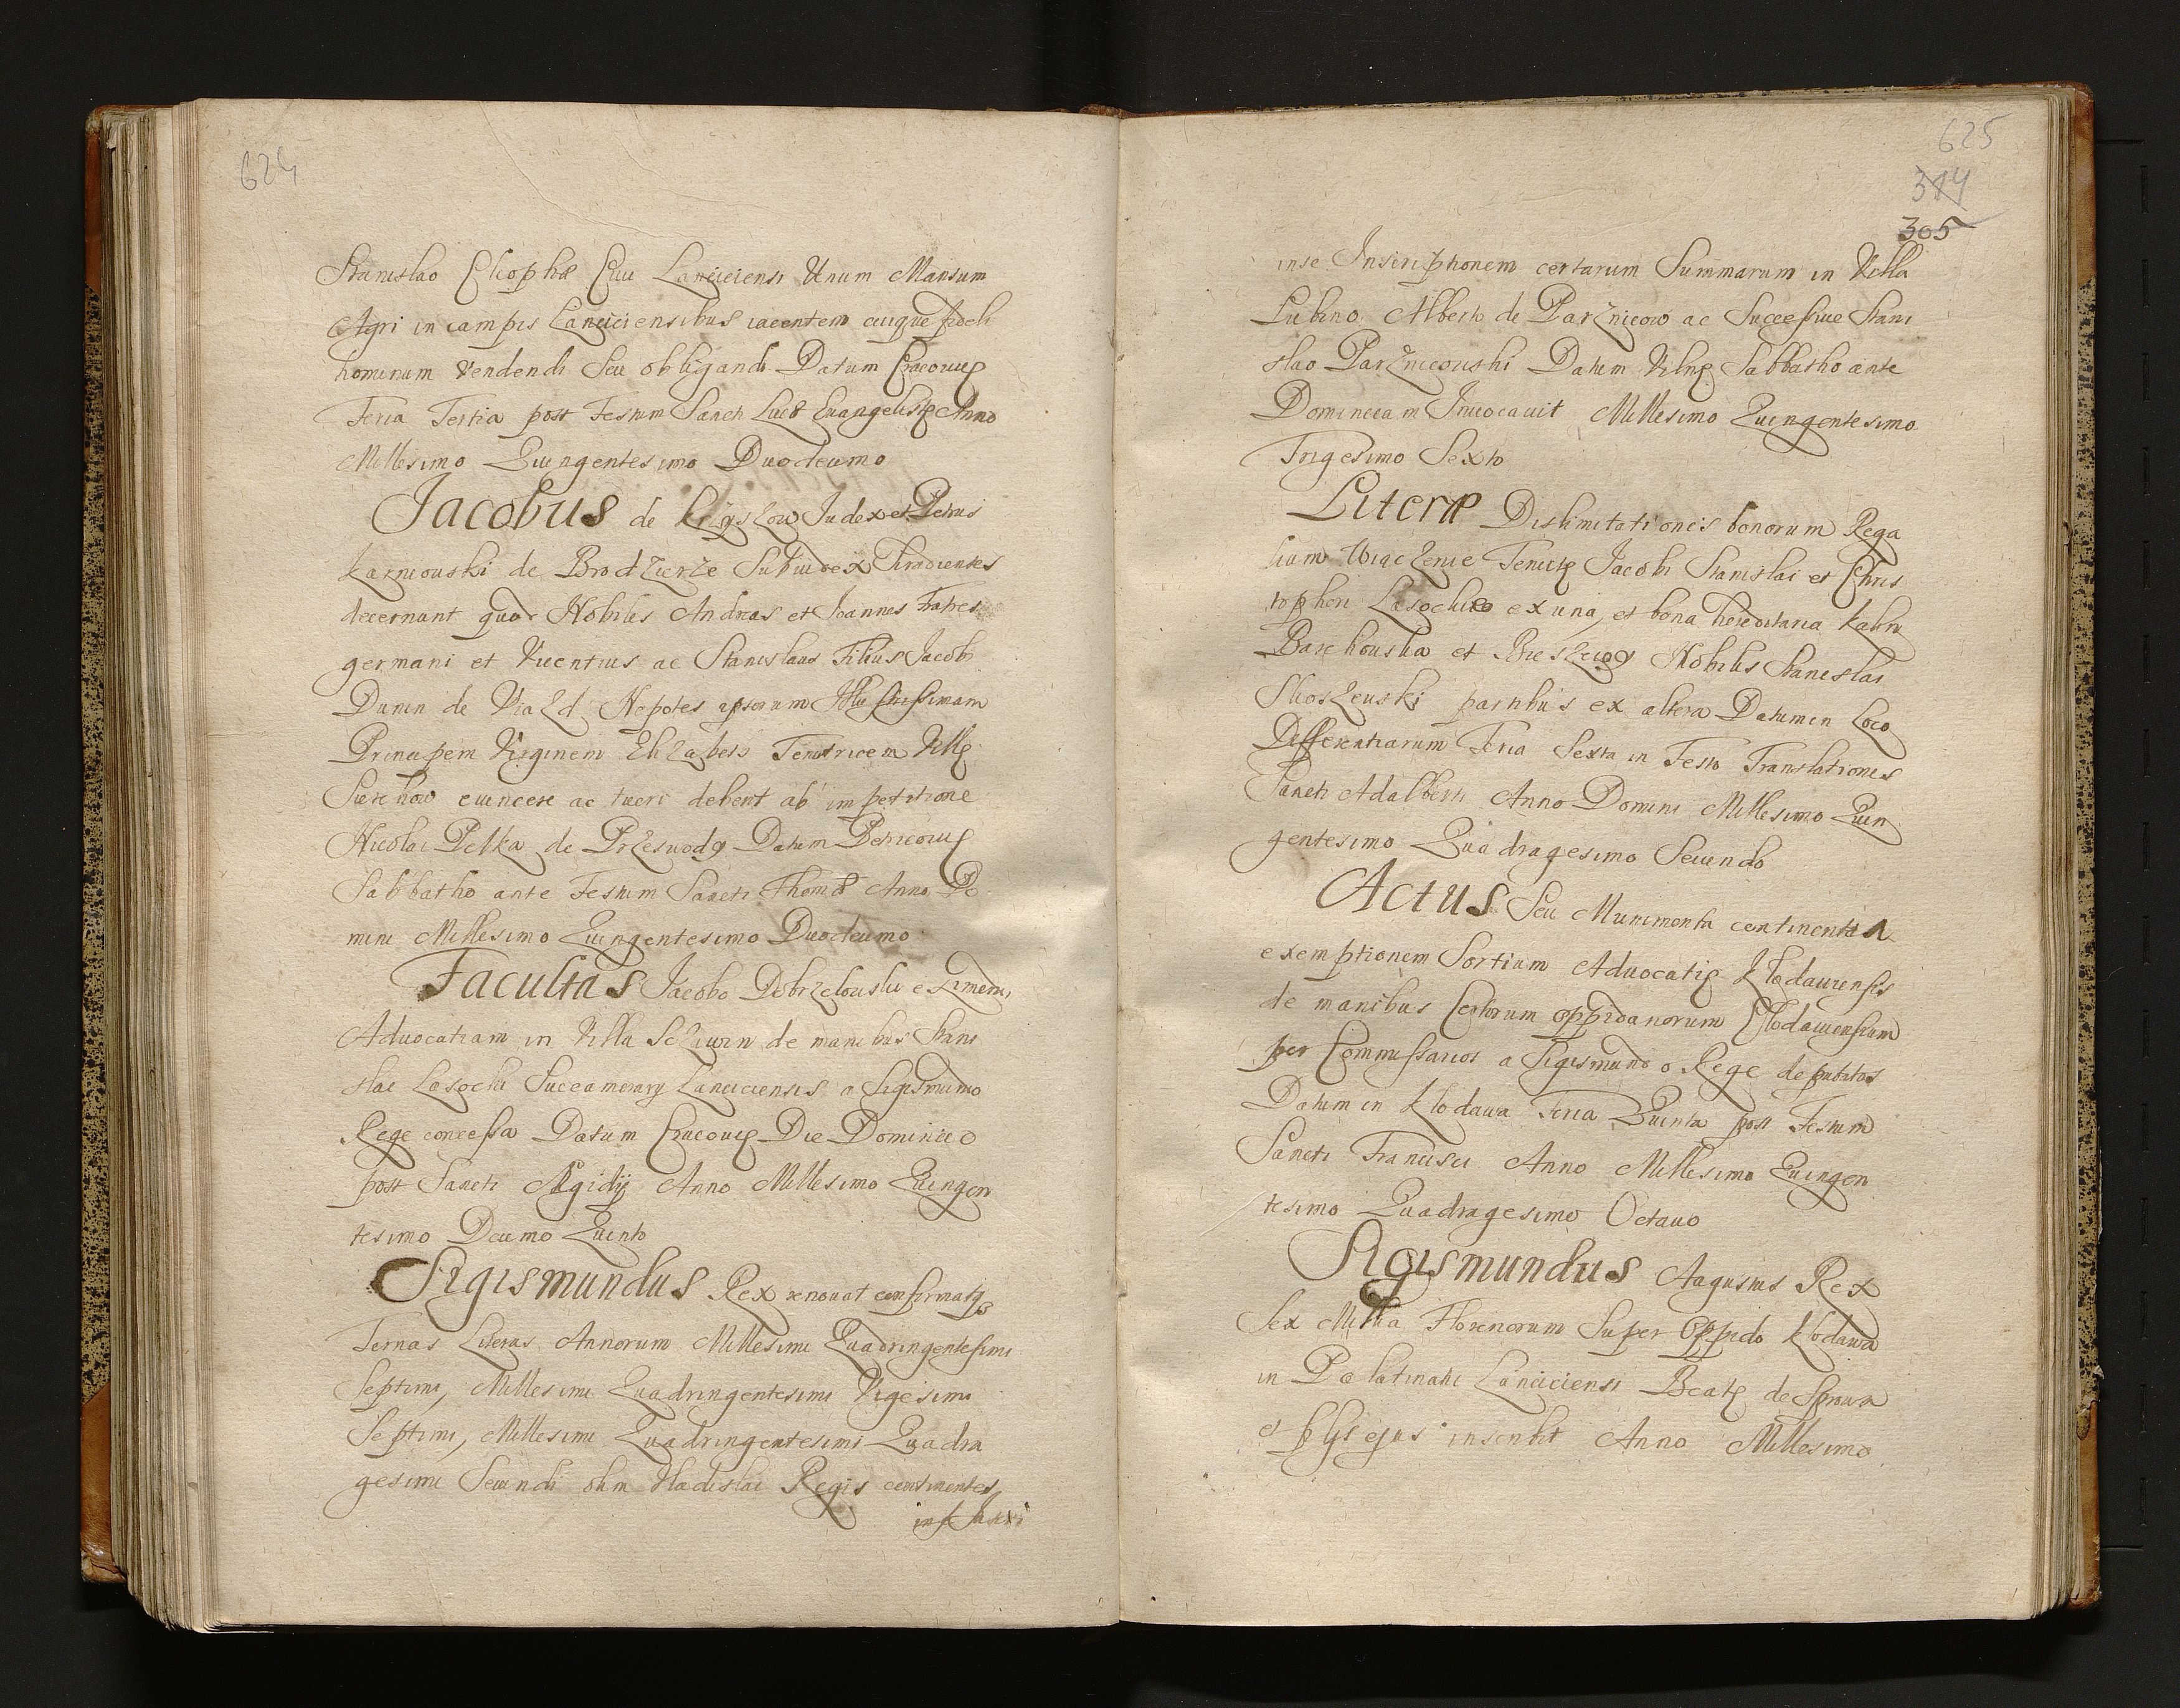 624
Stanislao Cliophæ Ciui Lanciciensi Unum Mansum
Agri in campis Lanciciensibus iacentem cuique fideli
hominum Vendendi Seu obligandi Datum Cracouię
Feria Tertia post Festum Sancti Lucæ Euangelistę Anno
Millesimo Quingentesimo Duodecimo
Jacobus de Judex et Petrus
Karniouski de Brodzicze Subiudex Siradienses
decernunt quod Nobiles Andreas et Joannes Fratres
germani et Vicentius ac Stanislaus Filius Jacobi
Dunin de Viazd Nepotes ipsorum Illustrissimam
Principem Virginem Elizabeth Tenutricem Villę
Sierchow euincere ac tueri debent ab impetitione
Nicolai Pelka de Przeswody Datum Petricouię
Sabbatho ante Festum Sancti Thomæ Anno Do
mini Millesimo Quingentesimo Duodecimo
Facultas Jacobo Dobrzelouski eximendi
Aduocatiam in Villa Sczawin de manibus Stani
slai Lasochi Succamerarij Lanciciensis a Sigismundo
Rege concessa Datum Cracouię Die Dominico
post Sancti Ægidij Anno Millesimo Quingen
tesimo Decimo Quinto
Sigismundus Rex renouat confirmatq
Ternas Literas Annorum Millesimi Quadringentesimi
Septimi, Millesimi Quadringentesimi Vigesimi
Septimi, Millesimi Quadringentesimi Quadra
gesimi Secundi olim Vladislai Regis continentes
625
314
305
inse Inscriptionem certarum Summarum in Villa
Lubino Alberto de Parznicow ac Successiue Stani
slao Parznicouski Datum Vilnę Sabbatho ante
Dominicam Inuocauit Millesimo Quingentesimo
Trigesimo Sexto
Literę Dislimitationis bonorum Rega
lium Wraczenie Tenutę Jacobi Stanislai et Chris
tophori Lasochii ex una, et bona hereditaria Kalin
Barchouska et Nobilis Stanislai
Skoszeuski partibus ex altera Datum in Loco
Differentiarum Feria Sexta in Festo Translationis
Sancti Adalberti Anno Domini Millesimo Quin
gentesimo Quadragesimo Secundo
Actus Seu Munimenta continentia
exemptionem Sortium Aduocatię Klodauiensis
de manibus Certorum oppidanorum Clodauiensium
per Commissarios a Sigismundo Rege deputatos
Datum in Klodaua Feria Quinta post Festum
Sancti Francisci Anno Millesimo Quingen
tesimo Quadragesimo Octauo
Sigismundus Augustus Rex
Sex Millia Florenorum Super Oppido Klodaua
in Palatinatu Lanciciensi Beatę de Sprowa
et filijs ejus inscribit Anno Millesimo